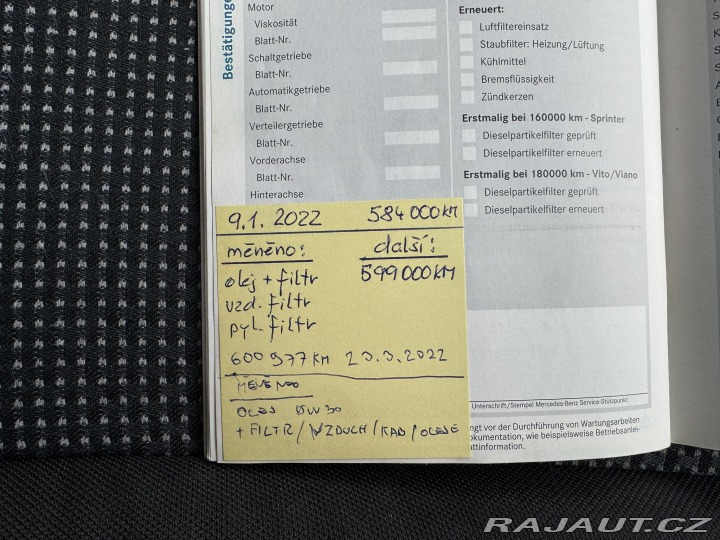 Bestätigungen
Motor
Viskosität
Blatt-Nr.
Schaltgetriebe
Blatt-Nr.
Automatikgetriebe
Blatt-Nr.
Verteilergetriebe
Blatt-Nr.
Vorderachse
Blatt-Nr.
Hinterachse
Erneuert:
Luftfiltereinsatz
Staubfilter: Heizung/Lüftung
Kühlmittel
Bremsflüssigkeit
Zündkerzen
Erstmalig bei 160000 km - Sprinter
Dieselpartikelfilter geprüft
Dieselpartikelfilter erneuert
Erstmalig bei 180000 km - Vito/Viano
Dieselpartikelfilter geprüft
Dieselpartikelfilter erneuert
9.1. 2022 584 000 KM
měněno: další:
olej + filtr 599 000 KM
vzd. filtr
pyl. filtr
600 977 KM 23.3.2022
MĚNĚNO
OLEJ 5W30
+ FILTR / VZDUCH / KAB / OLEJE
Unterschrift/Stempel Mercedes-Benz Service-Stützpunkt
ngt vor der Durchführung von Wartungsarbeiten
okumentation, wie beispielsweise Betriebsanlei-
attinformation.
RAJAUT.CZ